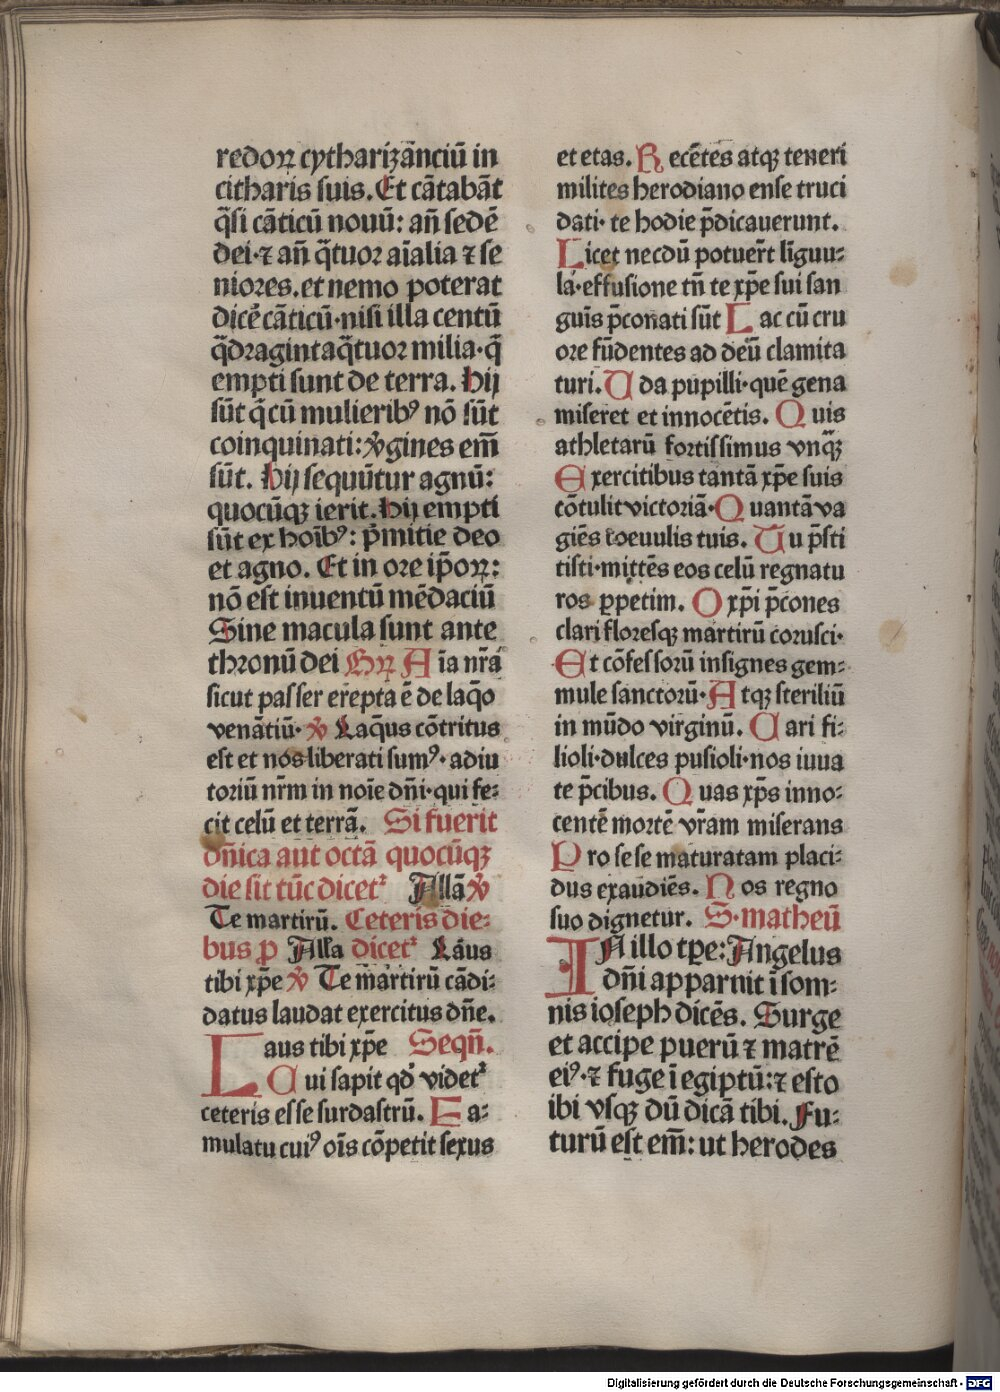 redoꝝ cytharizānciū in
citharis suis. Et cātabāt
q̄si cāticū nouū: añ sedē
dei·⁊ añ q̄tuor aīalia ⁊ se
niores. et nemo poterat
dicē cāticū·nisi illa centū
q̄dragintaq̄tuor milia·q̄
empti sunt de terra. Hij
sūt q̄ cū mulierib⁹ nō sūt
coinquinati: v̄gines em̄
sūt. Hij sequūtur agnū:
quocūqꝫ ierit. Hij empti
sūt ex hoīb⁹: p̄mitie deo
et agno. Et in ore ip̄oꝝ:
nō est inuentū mēdaciū
Sine macula sunt ante
thronū dei Grꝝ A īa nr̄a
sicut passer er̄epta ē de laq̄o
venātiū· v̄ Laq̄us cōtritus
est et nos liberati sum⁹· adiu
toriū nr̄m in noīe dn̄i·qui fe⸗
cit celū et terrā. Si fuerit
dn̄ica aut octā quocūqꝫ
die sit tūc dicet᷑ Allā v̄
Te martirū. Ceteris die⸗
bus p̱ Alla dicet᷑ Lāus
tibi xp̄e v̄ Te martirū cādi⸗
datus laudat exercitus dn̄e.
Laus tibi xp̄e Seqn̄.
C ui sapit qd̓ videt᷑
ceteris esse surdastrū. E a⸗
mulatu cui⁹ oīs cōpetit sexus
et etas. R ecētes atqꝫ teneri
milites herodiano ense truci
dati· te hodie p̄dicauerunt.
Licet necdū potuer̄t līguu⸗
la·effusione tn̄ te xp̄e sui san
guīs p̄conati sūt L ac cū cru
ore fūdentes ad deū clamita
turi. U da pupilli·quē gena
miseret et innocētis. Q uis
athletarū fortissimus vnq̄ꝫ
E xercitibus tantā xp̄e suis
cōtulit victoriā· Q uantā va
giēs coeuulis tuis. T u p̄sti
tisti·mittēs eos celū regnatu
ros p̱petim. O xp̄i p̄cones
clari floresqꝫ martirū corusci·
E t cōfessorū insignes gem⸗
mule sanctorū· A tqꝫ steriliū
in mūdo virginū. C ari fi⸗
lioli·dulces pusioli·nos iuua
te p̄cibus. Q uas xp̄s inno⸗
centē mortē vr̄am miserans
P ro sese maturatam placi⸗
dus exaudiēs. N os regno
suo dignetur. S·matheū
IN illo tp̄e: Angelus
dn̄i apparuit ī som⸗
nis ioseph dicēs. Surge
et accipe puerū ⁊ matrē
ei⁹·⁊ fuge ī egiptū:⁊ esto
ibi vsqꝫ dū dicā tibi. Fu⸗
turū est em̄: ut herodes
Digitalisierung gefördert durch die Deutsche Forschungsgemeinschaft - DFG